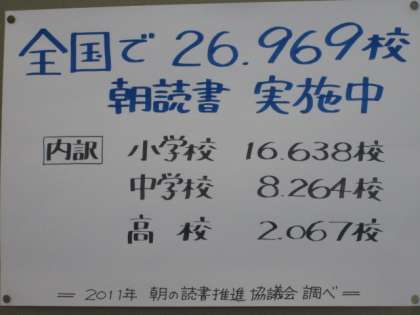 全国で 26.969校
朝読書 実施中
内訳 小学校 16.638校
中学校 8.264校
高校 2.067校
＝ 2011年 朝の読書推進協議会 調べ ＝